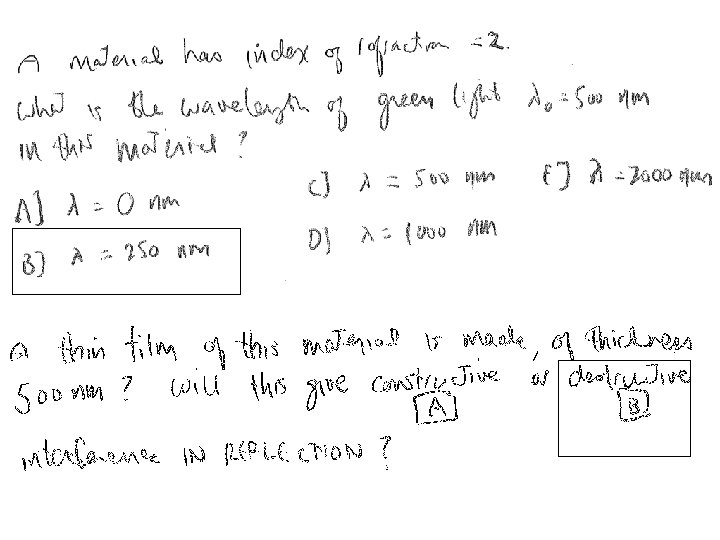 A material has index of refraction = 2.
What is the wavelength of green light λ₀ = 500 nm
in this material ?
A] λ = 0 nm
B] λ = 250 nm
C] λ = 500 nm
D] λ = 1000 nm
E] λ = 2000 nm
A thin film of this material is made, of thickness
500 nm ? Will this give constructive or destructive
A B
interference IN REFLECTION ?